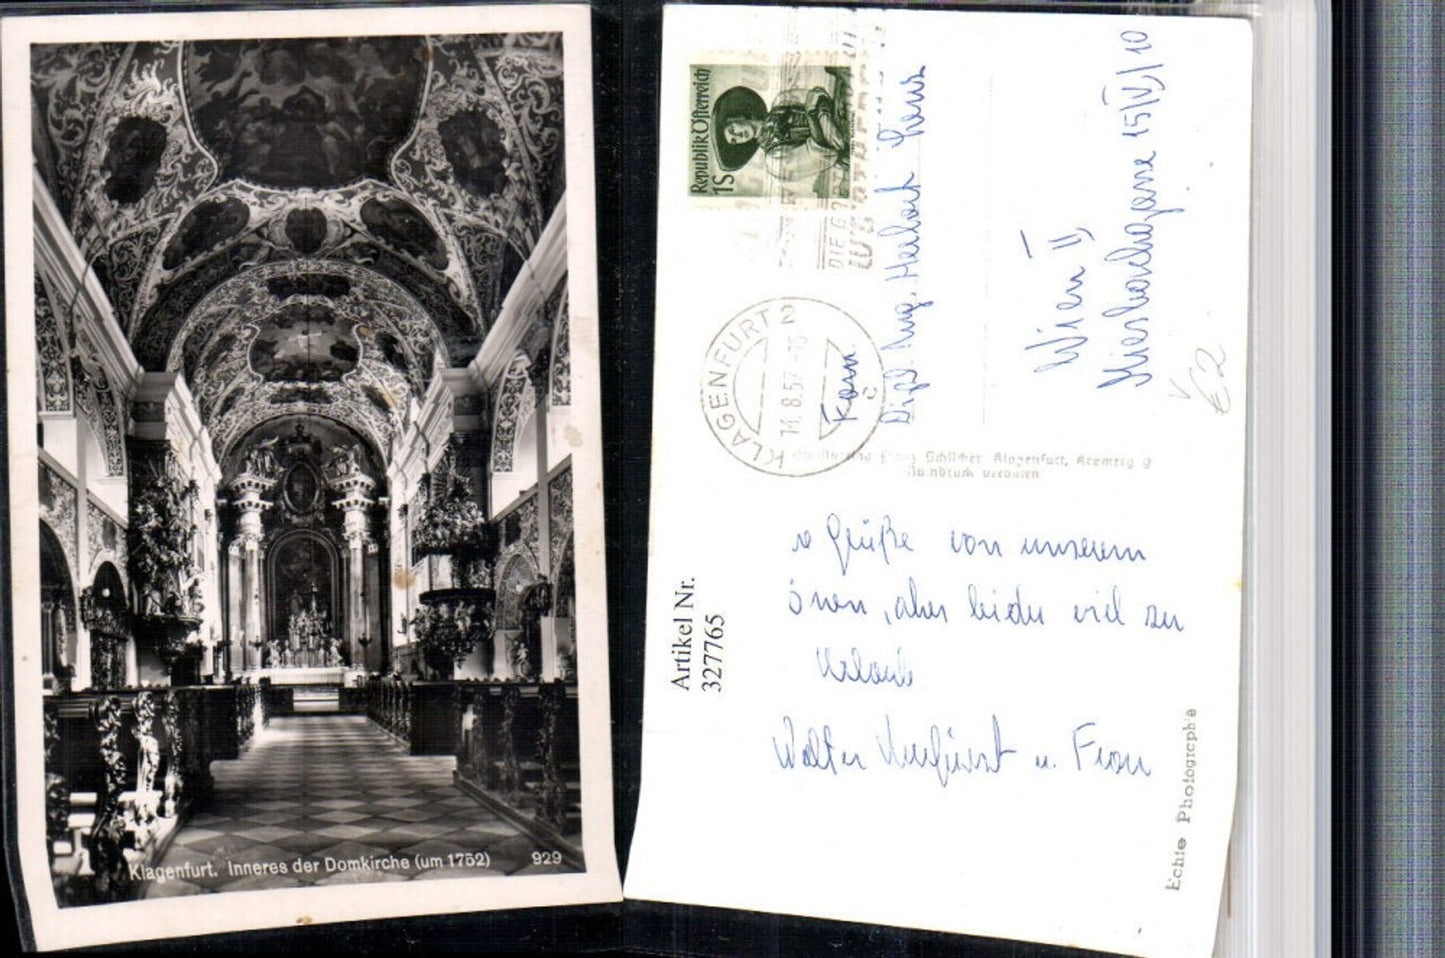 Klagenfurt. Inneres der Domkirche (um 1752) 929
Republik Österreich
1S
KLAGENFURT 2
14.8.57.-16
c
DIE
Fam.
Dipl. Ing.
Wien II
15/V/10
€2
Franz Schilcher Klagenfurt, Kramerg 9
Nachdruck verboten
Grüße von unserem
önen, aber leider viel zu
Urlaub
Walter u. Frau
Artikel Nr.
327765
Echte Photographie